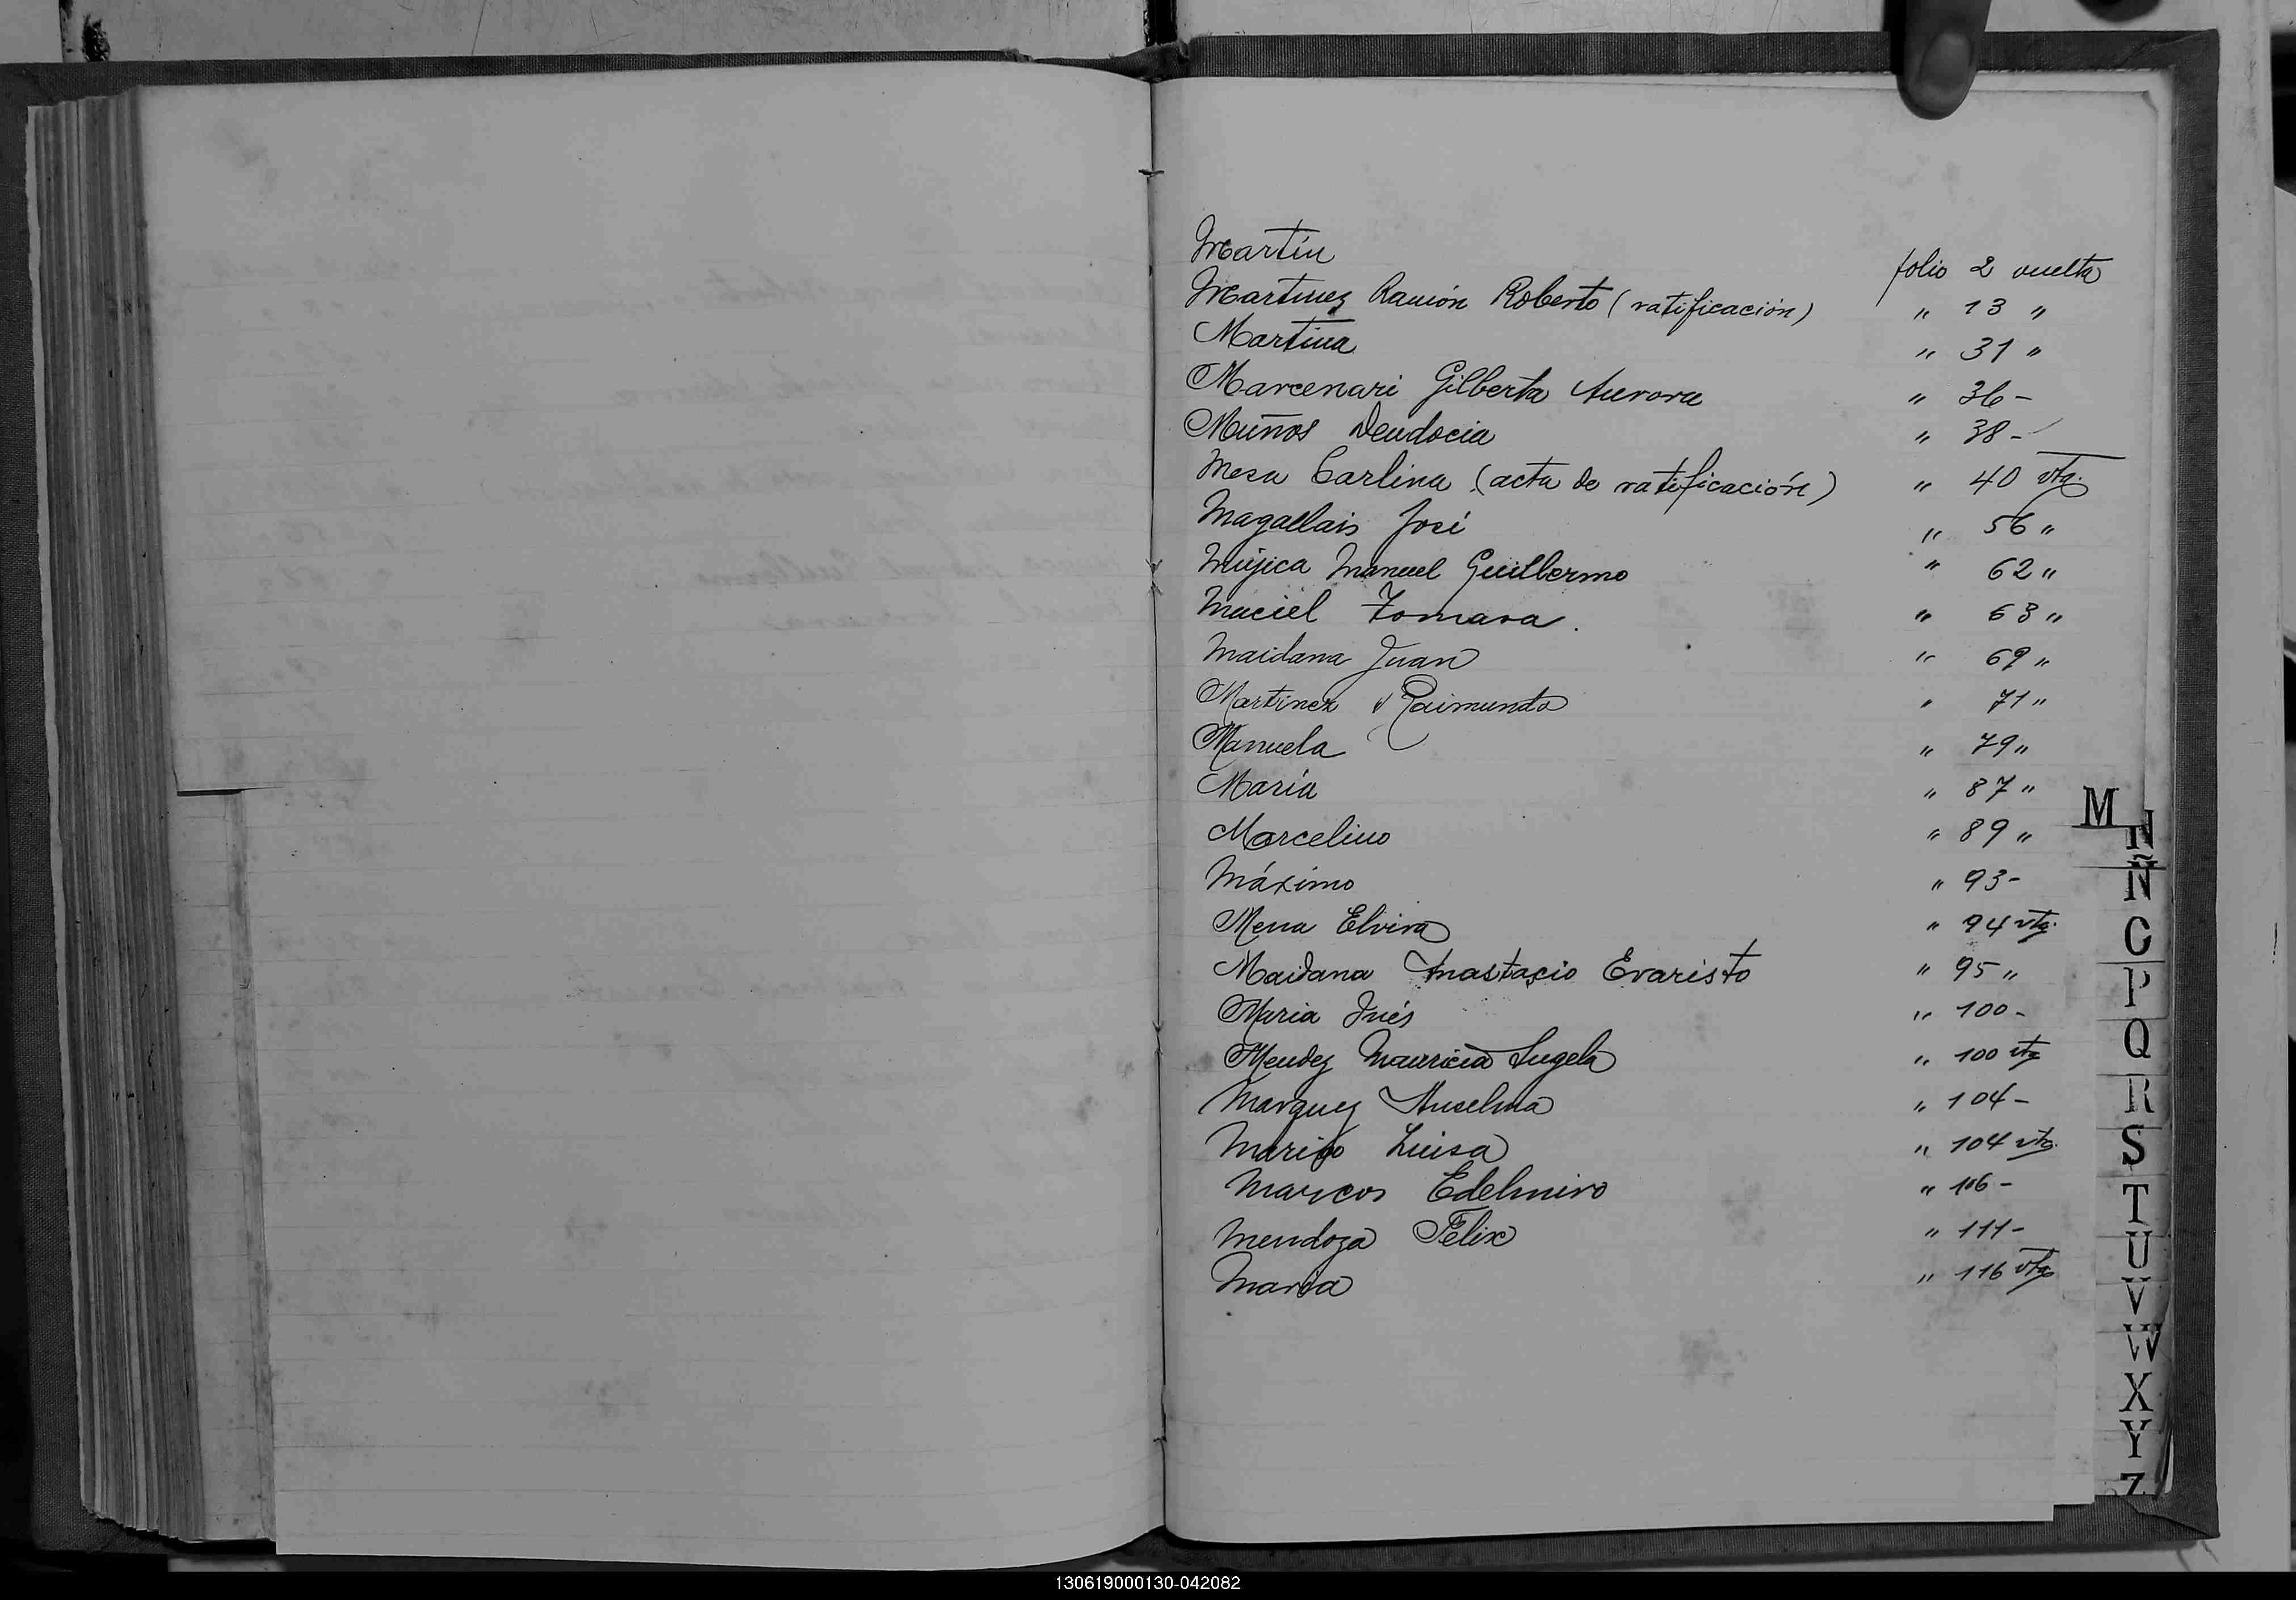 Martín folio 2 vuelta
Martinez Ramón Roberto (ratificación) " 13 "
Martina " 31 "
Marcenari Gilberta Aurora " 36 -
Muños Deudocia " 38 -
Mesa Carlina (acta de ratificación) " 40 vta.
Magallais José " 56 "
Mújica Manuel Guillermo " 62 "
Maciel Tomasa. " 63 "
Maidana Juan " 69 "
Martinez Raimundo " 71 "
Manuela " 79 "
María " 87 "
Marcelino " 89 "
Máximo " 93 -
Mena Elvira " 94 vta.
Maidana Anastacio Evaristo " 95 "
Maria Inés " 100 -
Mendez Mauricia Angela " 100 vta
Marquez Anselma " 104 -
Luisa " 104 vta.
Marcos Edelmiro " 106 -
Mendoza Felix " 111 -
Maria " 116 vta
M
N
Ñ
O
P
Q
R
S
T
U
V
W
X
Y
Z
130619000130-042082